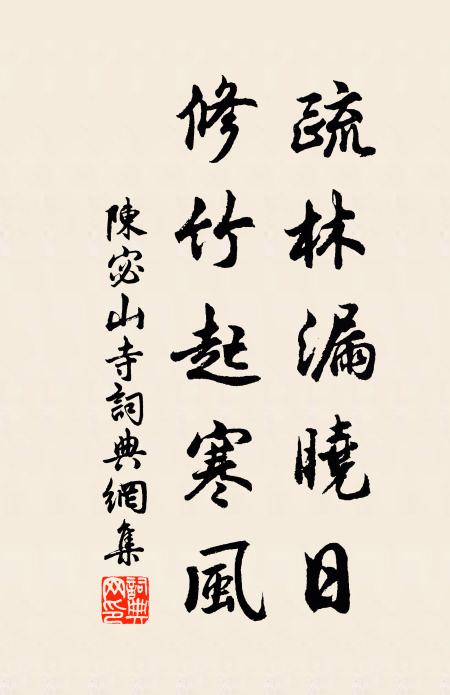 疏林漏曉日
修竹起寒風
陳宓山寺詞典網集
詞典網印